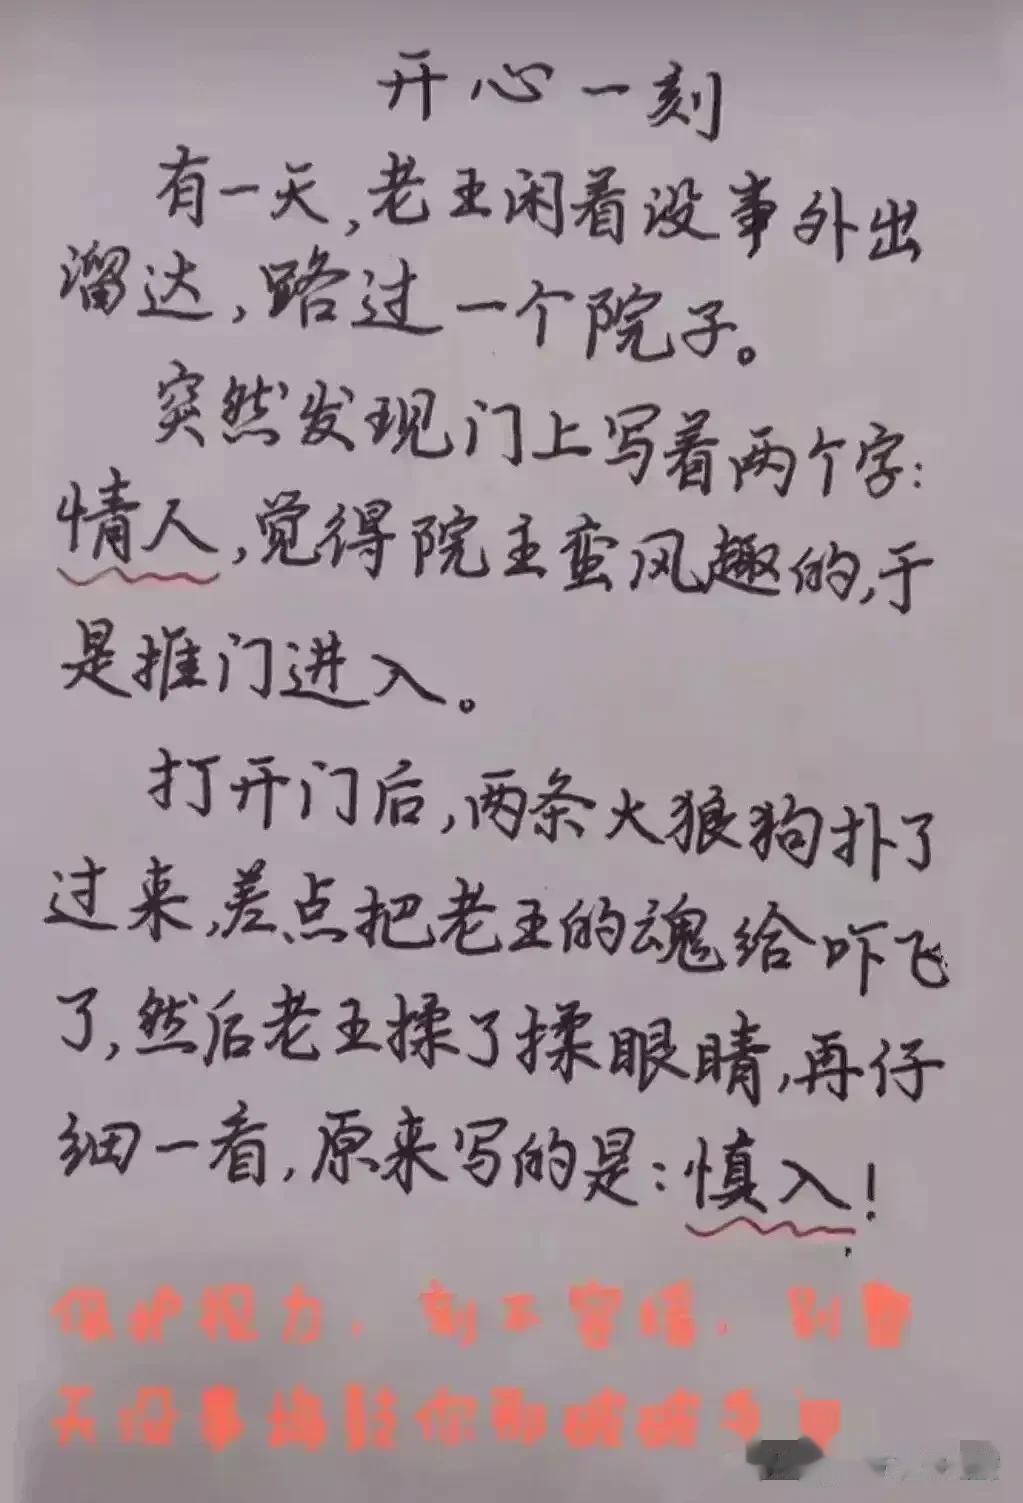 开心一刻
有一天,老王闲着没事外出
溜达,路过一个院子。
突然发现门上写着两个字:
情人,觉得院主蛮风趣的,于
是推门进入。
打开门后,两条大狼狗扑了
过来,差点把老王的魂给吓飞
了,然后老王揉了揉眼睛,再仔
细一看,原来写的是:慎入!
保护视力,刻不容缓,别整
天没事搞鼓你那破